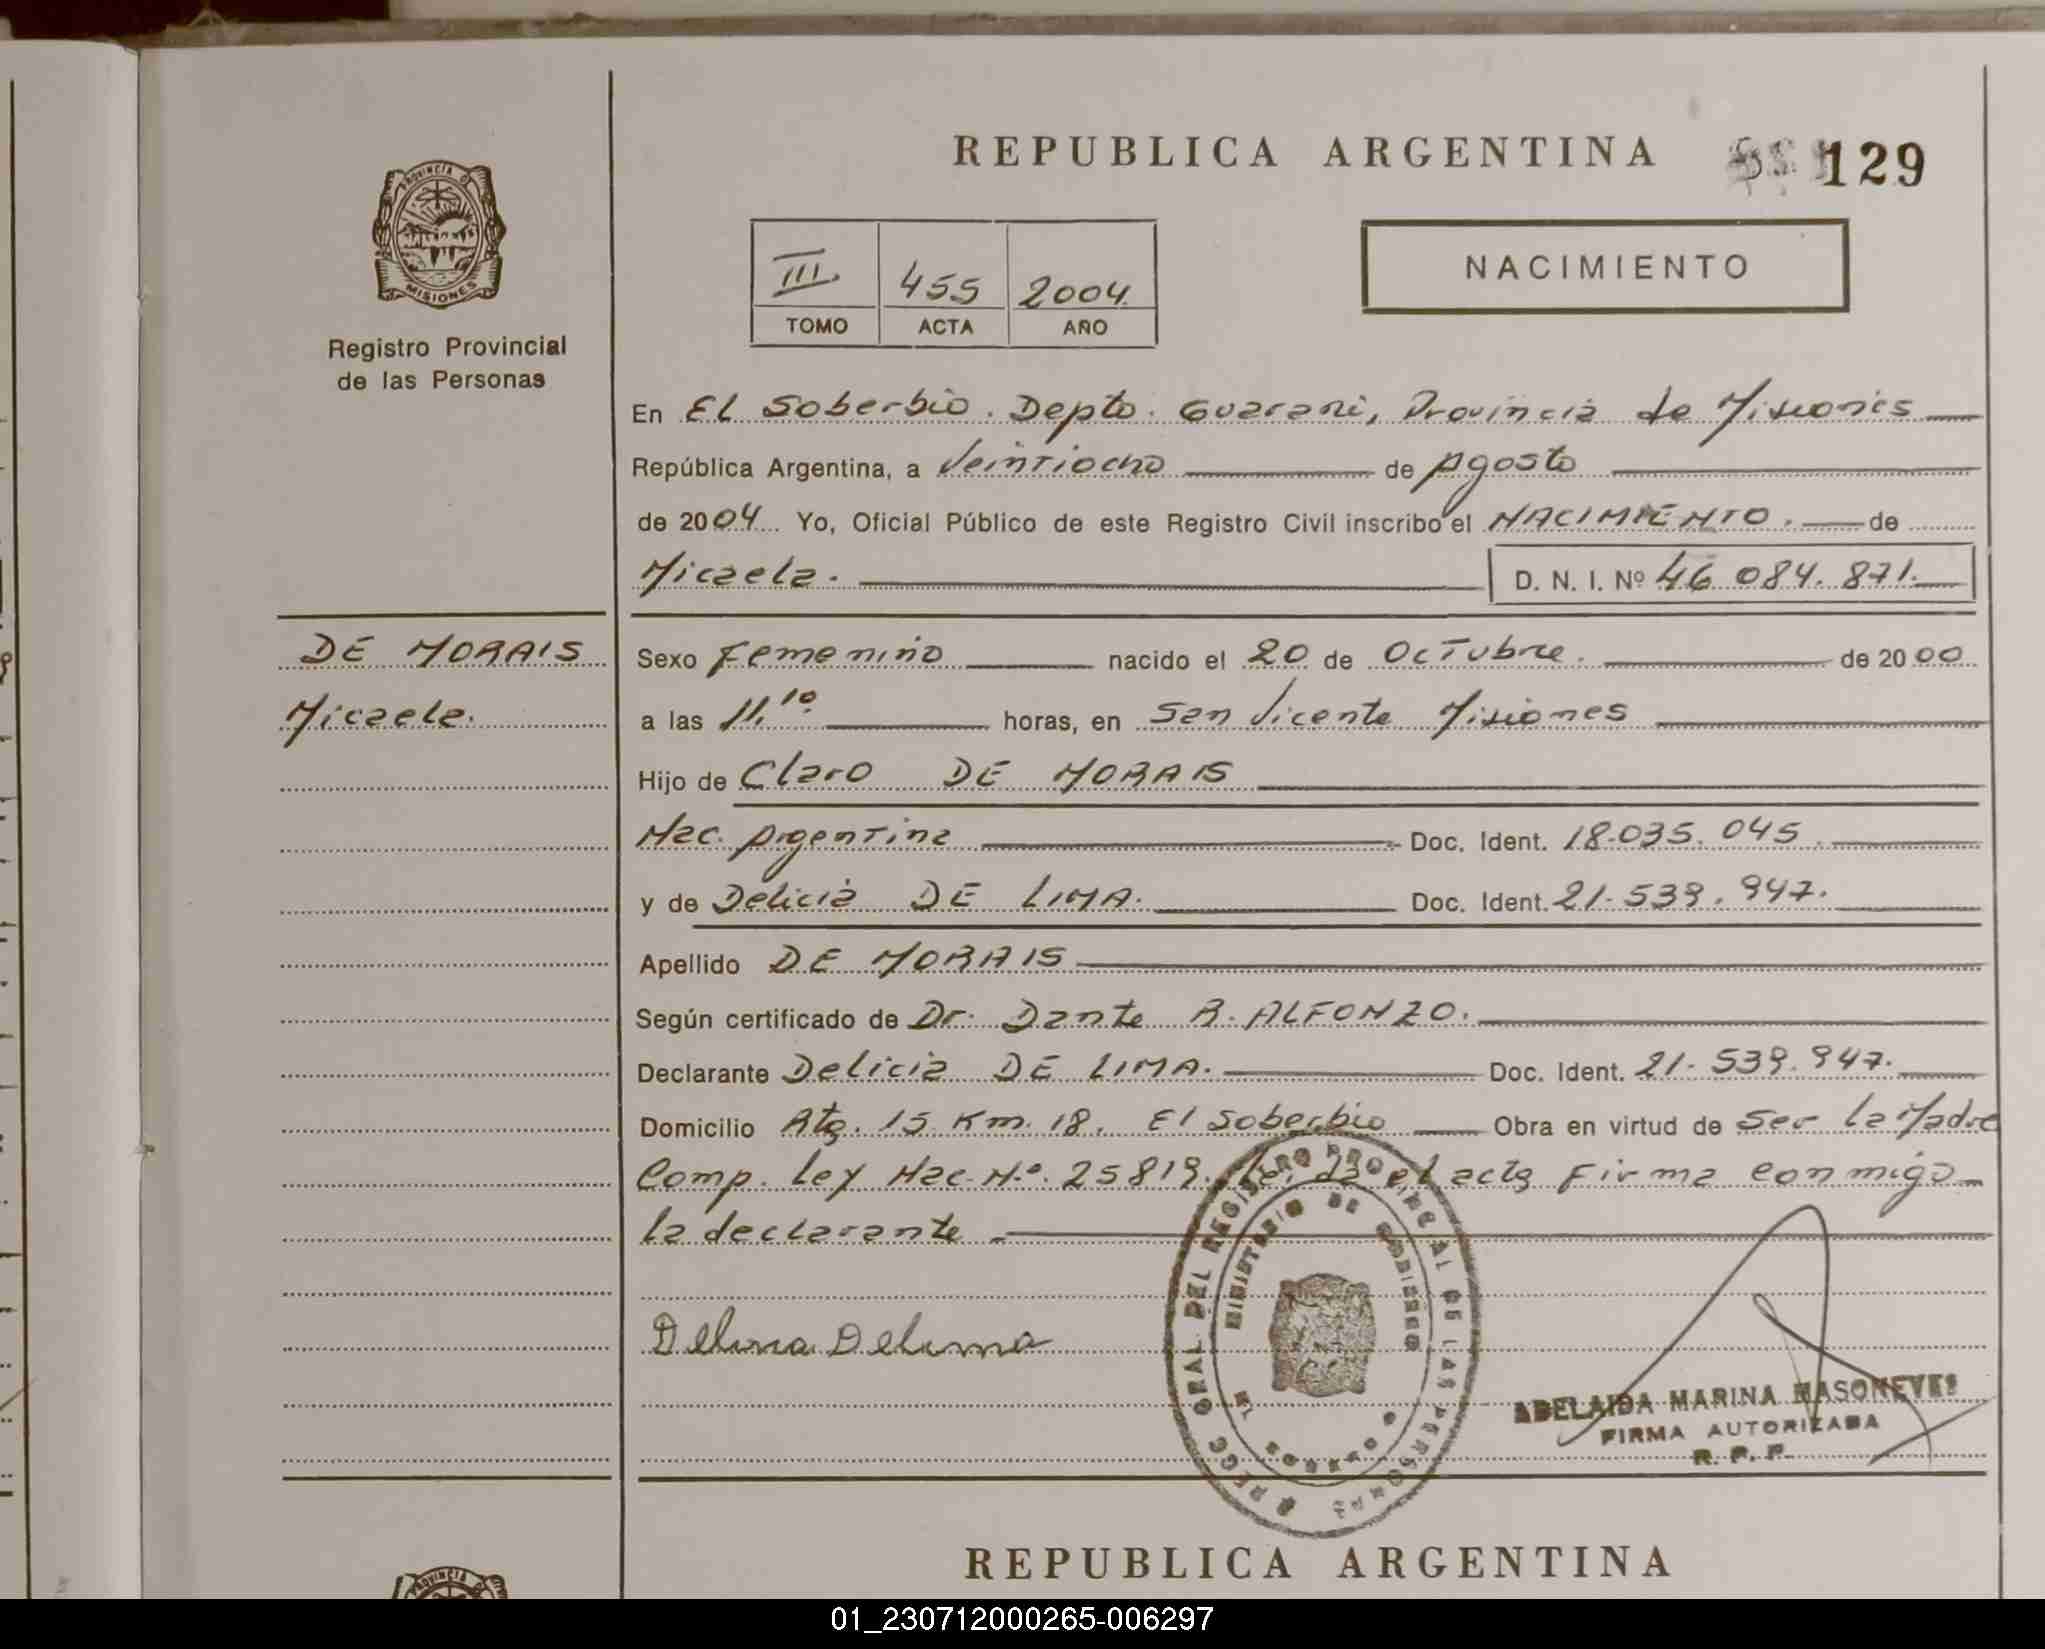 REPUBLICA ARGENTINA 129
PROVINCIA D
MISIONES
Registro Provincial
de las Personas
III 455 2004
TOMO ACTA AÑO
NACIMIENTO
En El Soberbio. Depto. Guaraní, Provincia de Misiones
República Argentina, a Veintiocho de Agosto
de 2004 Yo, Oficial Público de este Registro Civil inscribo el NACIMIENTO. de
Micaela. D. N. I. Nº 46 084. 871.
DE MORAIS
Micaela.
Sexo Femenino nacido el 20 de Octubre. de 2000
a las 11,10. horas, en San Vicente Misiones
Hijo de Claro DE MORAIS
Nac. Argentina Doc. Ident. 18.035.045
y de Delicia DE LIMA. Doc. Ident. 21.539.947.
Apellido DE MORAIS
Según certificado de Dr. Dante R. ALFONZO.
Declarante Delicia DE LIMA. Doc. Ident. 21.539.947.
Domicilio Rta. 15 Km. 18. El Soberbio Obra en virtud de Ser la Madre
Comp. Ley Nac. Nº. 25819. Leída el acta Firma conmigo
la declarante
Delima
ADELAIDA MARINA
FIRMA AUTORIZADA
R. P. P.
GRAL DEL REGISTRO PROVINCIAL DE LAS PERSONAS
MINISTERIO DE GOBIERNO
REPUBLICA ARGENTINA
PROVINCIA D
01_230712000265-006297